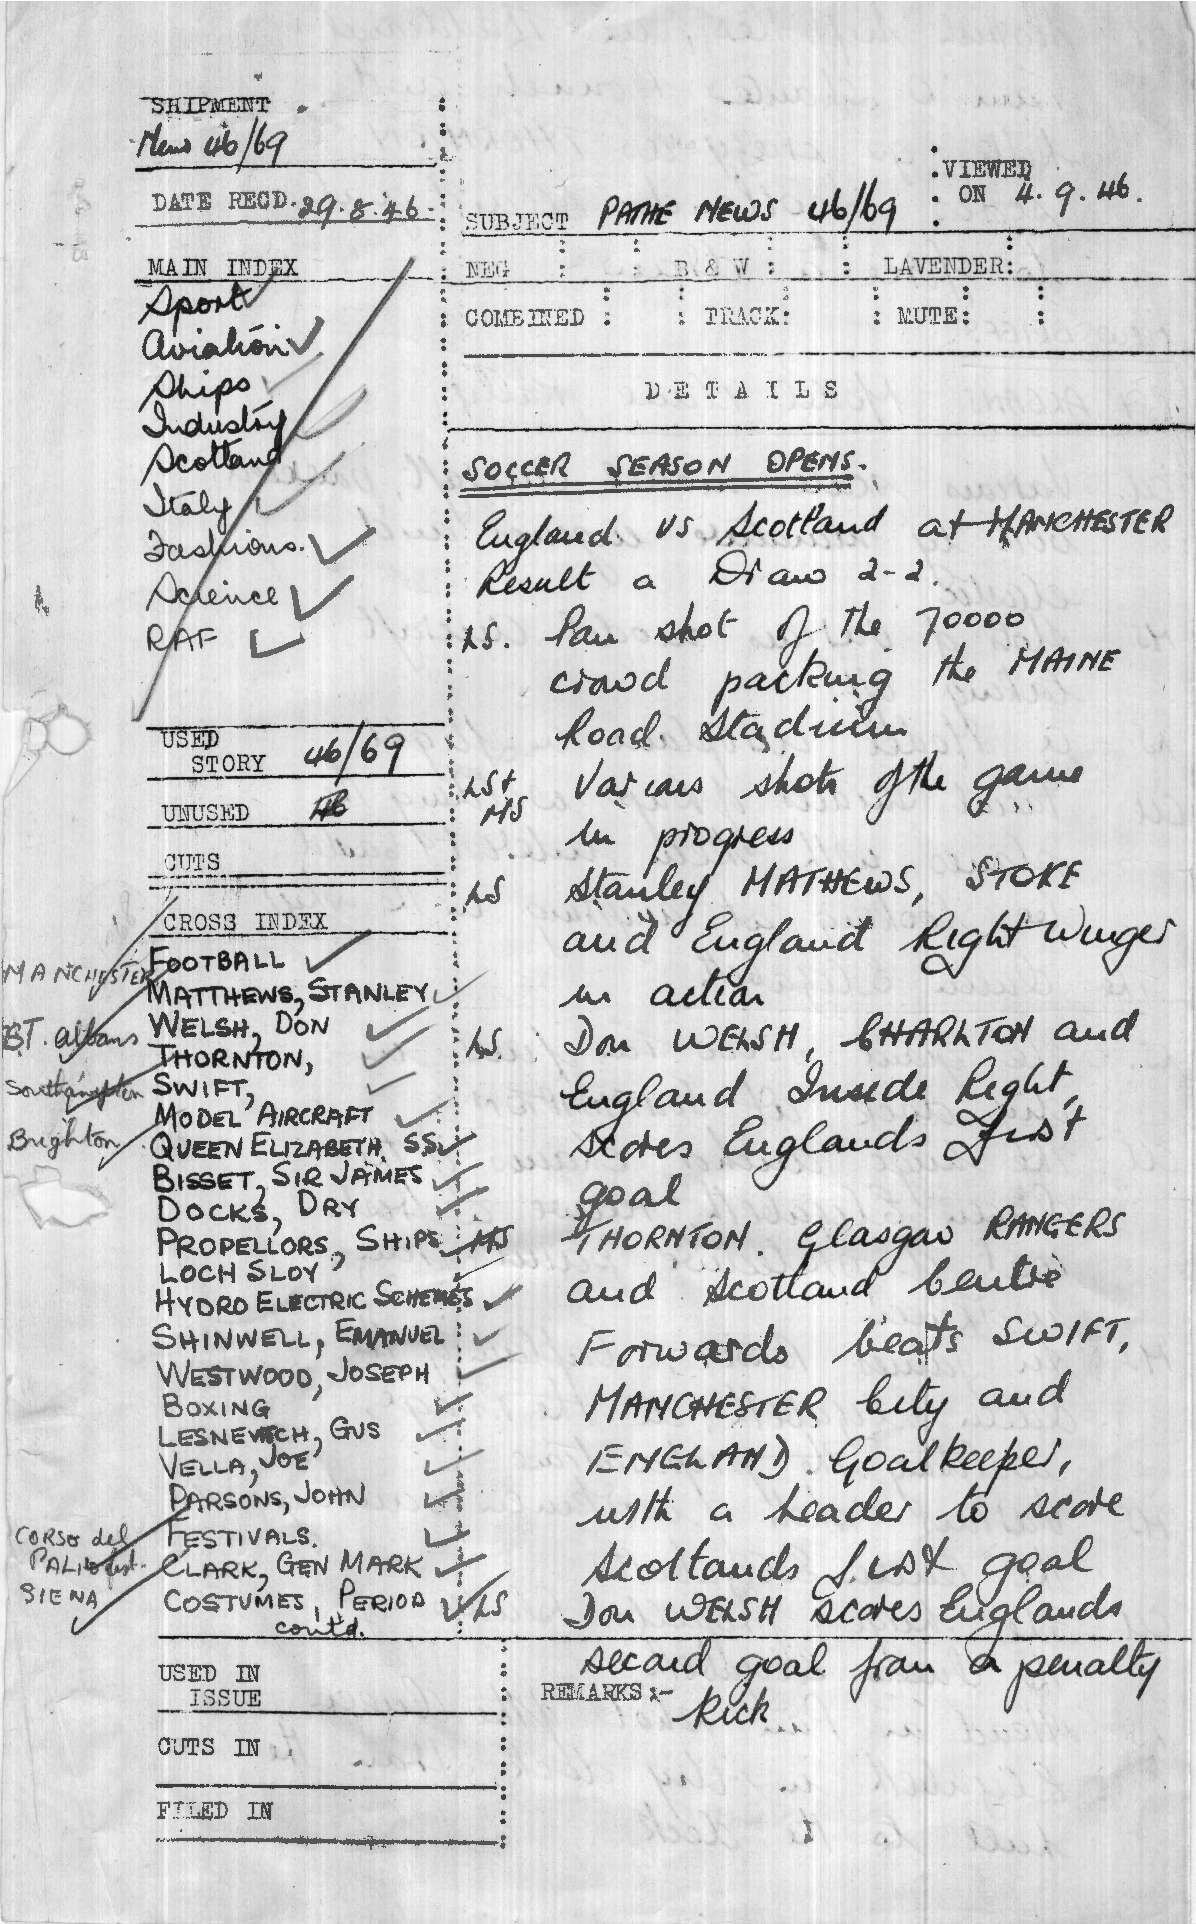 SHIPMENT
News 46/69
DATE RECD. 29.8.46.
MAIN INDEX
Sport
Aviation
Ships
Industry
Scotland
Italy
Fashions.
Science
RAF
USED
STORY 46/69
UNUSED
CUTS
CROSS INDEX
FOOTBALL
MANCHESTER
MATTHEWS, STANLEY
WELSH, DON
ST. albans
THORNTON,
SWIFT,
Southampton
MODEL AIRCRAFT
Brighton
QUEEN ELIZABETH, SS
BISSET, SIR JAMES
DOCKS, DRY
PROPELLORS, SHIPS
LOCH SLOY
HYDRO ELECTRIC SCHEMES
SHINWELL, EMANUEL
WESTWOOD, JOSEPH
BOXING
LESNEVICH, GUS
VELLA, JOE
PARSONS, JOHN
FESTIVALS.
CORSO del
PALIO fest.
SIENA
CLARK, GEN MARK
COSTUMES, PERIOD
contd.
USED IN
ISSUE
CUTS IN
FILED IN
VIEWED
ON 4.9.46.
SUBJECT PATHE NEWS 46/69
NEG : : B & W : : LAVENDER:
COMBINED : : TRACK: : MUTE: :
DETAILS
SOCCER SEASON OPENS.
England vs Scotland at MANCHESTER
Result a Draw 2-2.
LS. Pan shot of the 70000
crowd packing the MAINE
Road Stadium
LS+
MS Various shots of the game
in progress
LS Stanley MATHEWS, STOKE
and England Right Winger
in action
LS. Don WELSH, CHARLTON and
England Inside Right,
scores Englands first
goal
MS THORNTON. Glasgow RANGERS
and Scotland Centre
Forwards beats SWIFT,
MANCHESTER City and
ENGLAND Goalkeeper,
with a header to score
Scotlands first goal
LS Don WELSH scores Englands
second goal from a penalty
REMARKS :-
kick